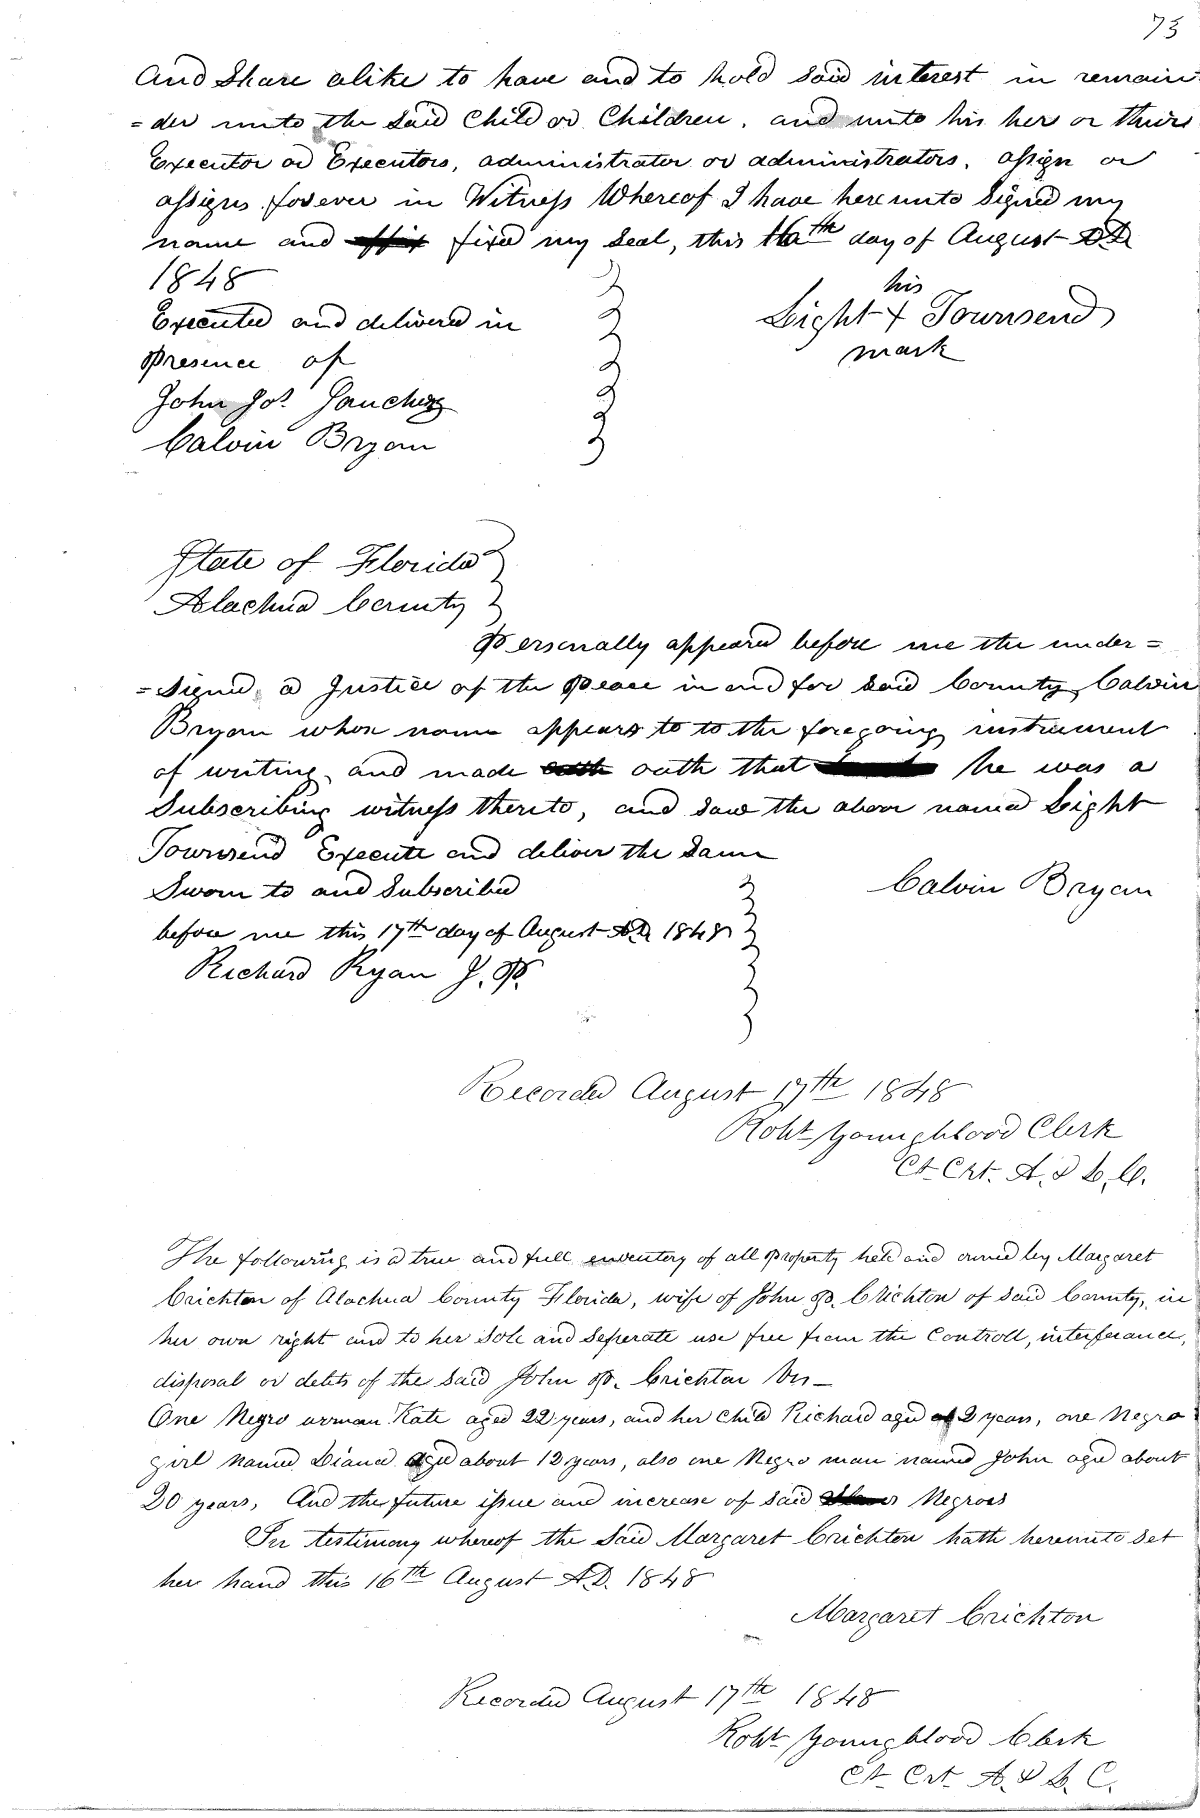 73
And Share alike to have and to hold said interest in remain
=der unto the said Child or Children, and unto his her or their
Executor or Executors, administrator or administrators, assign or
assigns forever in Witness Whereof I have hereunto Signed my
name and fixed my Seal, this 16th day of August AD
1848
his
Executed and delivered in
Light X Townsend
Presence of
mark
John Jos.
Calvin Bryan
State of Florida
Alachua County
Personally appeared before me the under=
=Signed, a Justice of the Peace in and for said County, Calvin
Bryan whose name appears to to the foregoing instrument
of writing, and made oath that he was a
Subscribing witness thereto, and saw the above named Light
Townsend Execute and deliver the Same
Sworn to and Subscribed
Calvin Bryan
before me this 17th day of August AD. 1848
Richard Ryan J. P.
Recorded August 17th 1848
Robt Youngblood Clerk
Ct. Crt. A. & L. C.
The following is a true and full enventory of all Property held and owned by Margaret
Crichton of Alachua County Florida, wife of John P. Crichton of said County, in
her own right and to her sole and seperate use free from the Controll, interferance,
disposal or debts of the said John P. Crichton Viz_
One Negro woman Kate aged 22 years, and her child Richard aged 2 years, one Negro
girl named Diana aged about 12 years, also one Negro man named John aged about
20 years, And the future issue and increase of said Negroes
In testimony whereof the said Margaret Crichton hath hereunto set
her hand this 16th August A.D. 1848
Margaret Crichton
Recorded August 17th 1848
Robt Youngblood Clerk
Ct. Crt. A. & L. C.